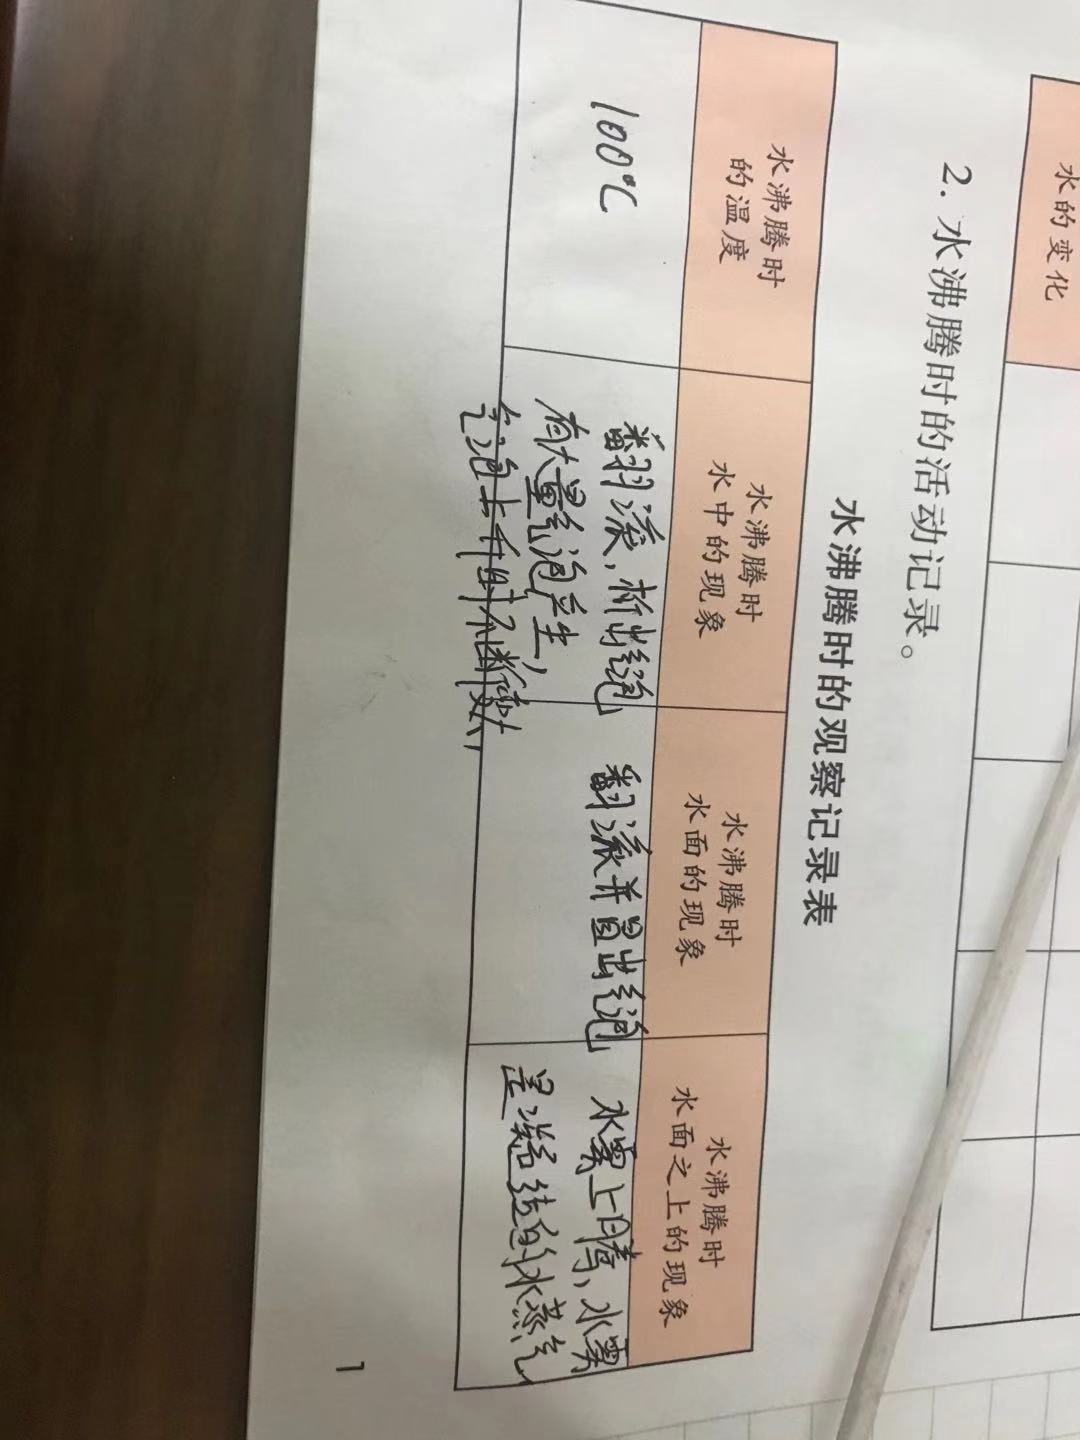 水的变化
2. 水沸腾时的活动记录。
水沸腾时的观察记录表
水沸腾时
的温度
水沸腾时
水中的现象
水沸腾时
水面的现象
水沸腾时
水面之上的现象
100℃
翻滚,析出气泡
有大量气泡产生,
气泡上升时不断变大,
翻滚并且出气泡
水雾上腾,水雾
是凝结的水蒸气
1